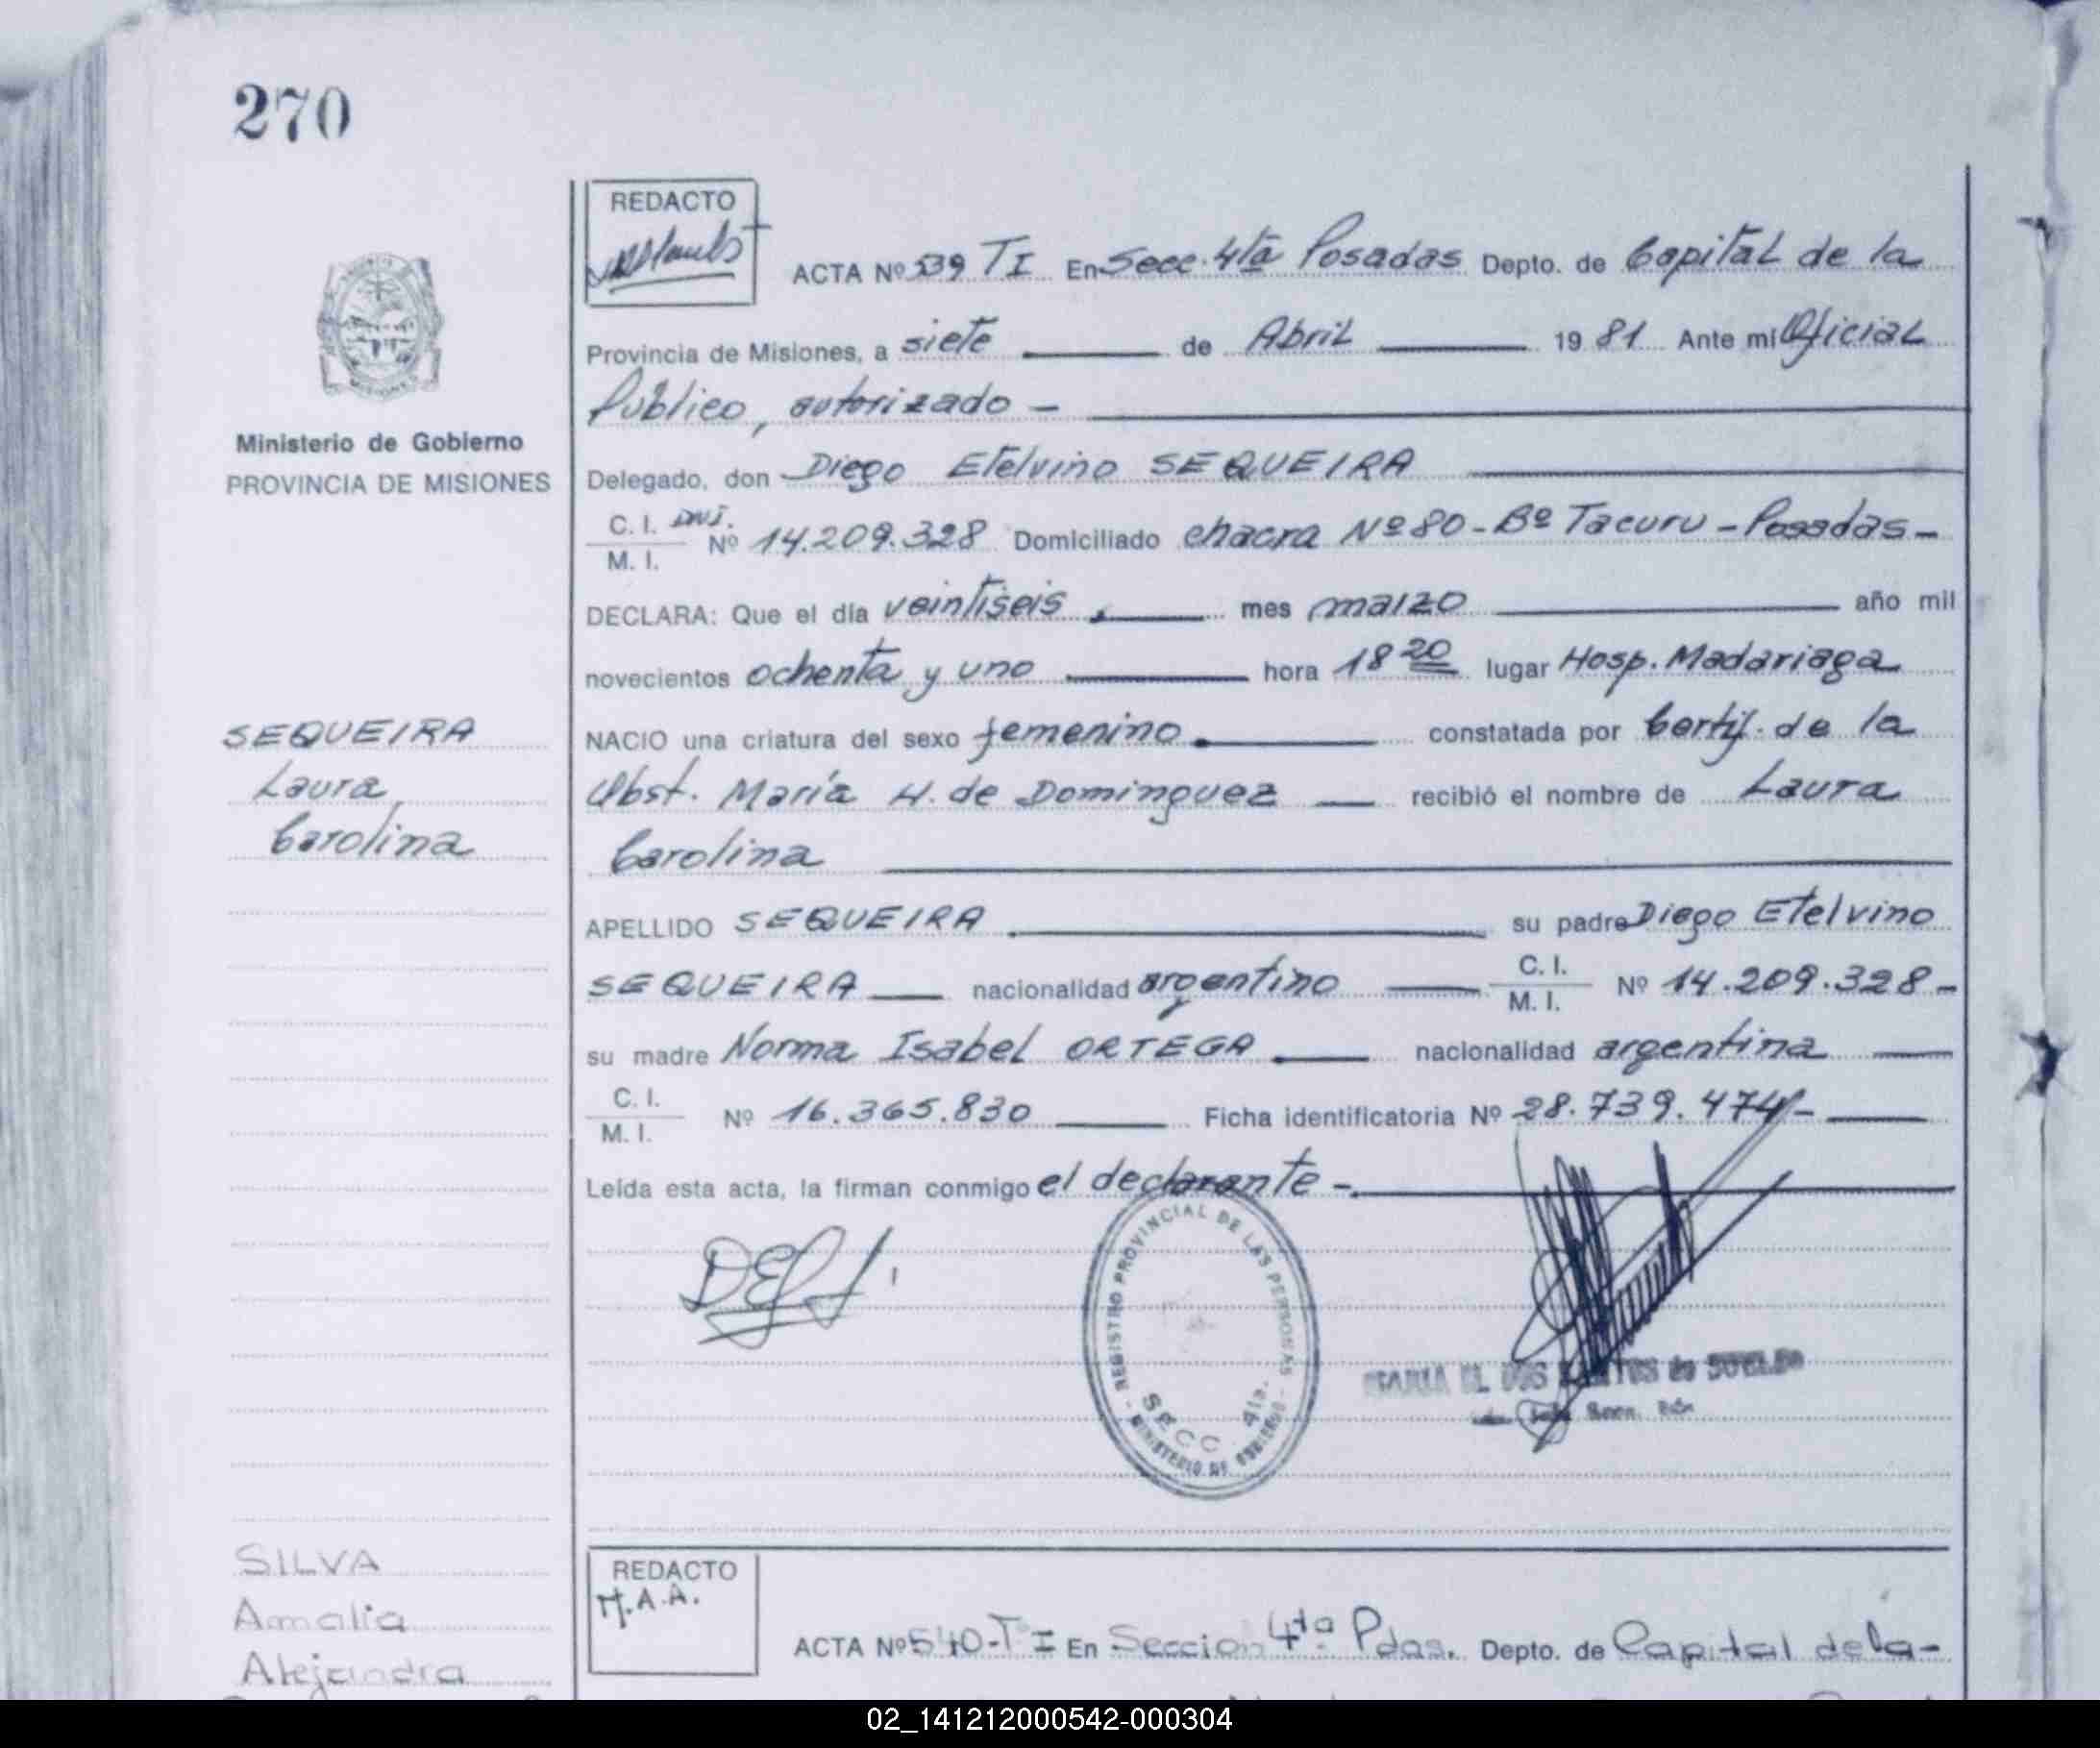 270
REDACTO
ACTA Nº 539 TI En Secc. 4ta Posadas Depto. de Capital de la
Provincia de Misiones, a siete de Abril 1981 Ante mi Oficial
Público, autorizado -
Ministerio de Gobierno
PROVINCIA DE MISIONES
Delegado, don Diego Etelvino SEQUEIRA
C. I. DNI.
M. I. Nº 14.209.328 Domiciliado chacra Nº 80 - Bº Tacuru - Posadas -
DECLARA: Que el día veintiseis mes marzo año mil
novecientos ochenta y uno hora 18 20 lugar Hosp. Madariaga
SEQUEIRA
Laura
Carolina
NACIO una criatura del sexo femenino. constatada por Certif. de la
Obst. María H. de Dominguez recibió el nombre de Laura
Carolina
APELLIDO SEQUEIRA su padre Diego Etelvino
SEQUEIRA nacionalidad argentino C. I. M. I. Nº 14.209.328 -
su madre Norma Isabel ORTEGA nacionalidad argentina
C. I. M. I. Nº 16.365.830 Ficha identificatoria Nº 28.739.474 -
Leída esta acta, la firman conmigo el declarante -
REGISTRO PROVINCIAL DE LAS PERSONAS
SECC 4ta.
MINISTERIO DE GOBIERNO
DOS
SILVA
Amalia
Alejandra
REDACTO
M.A.A.
ACTA Nº 540-Tº I En Seccion 4ta Pdas. Depto. de Capital de la-
02_141212000542-000304